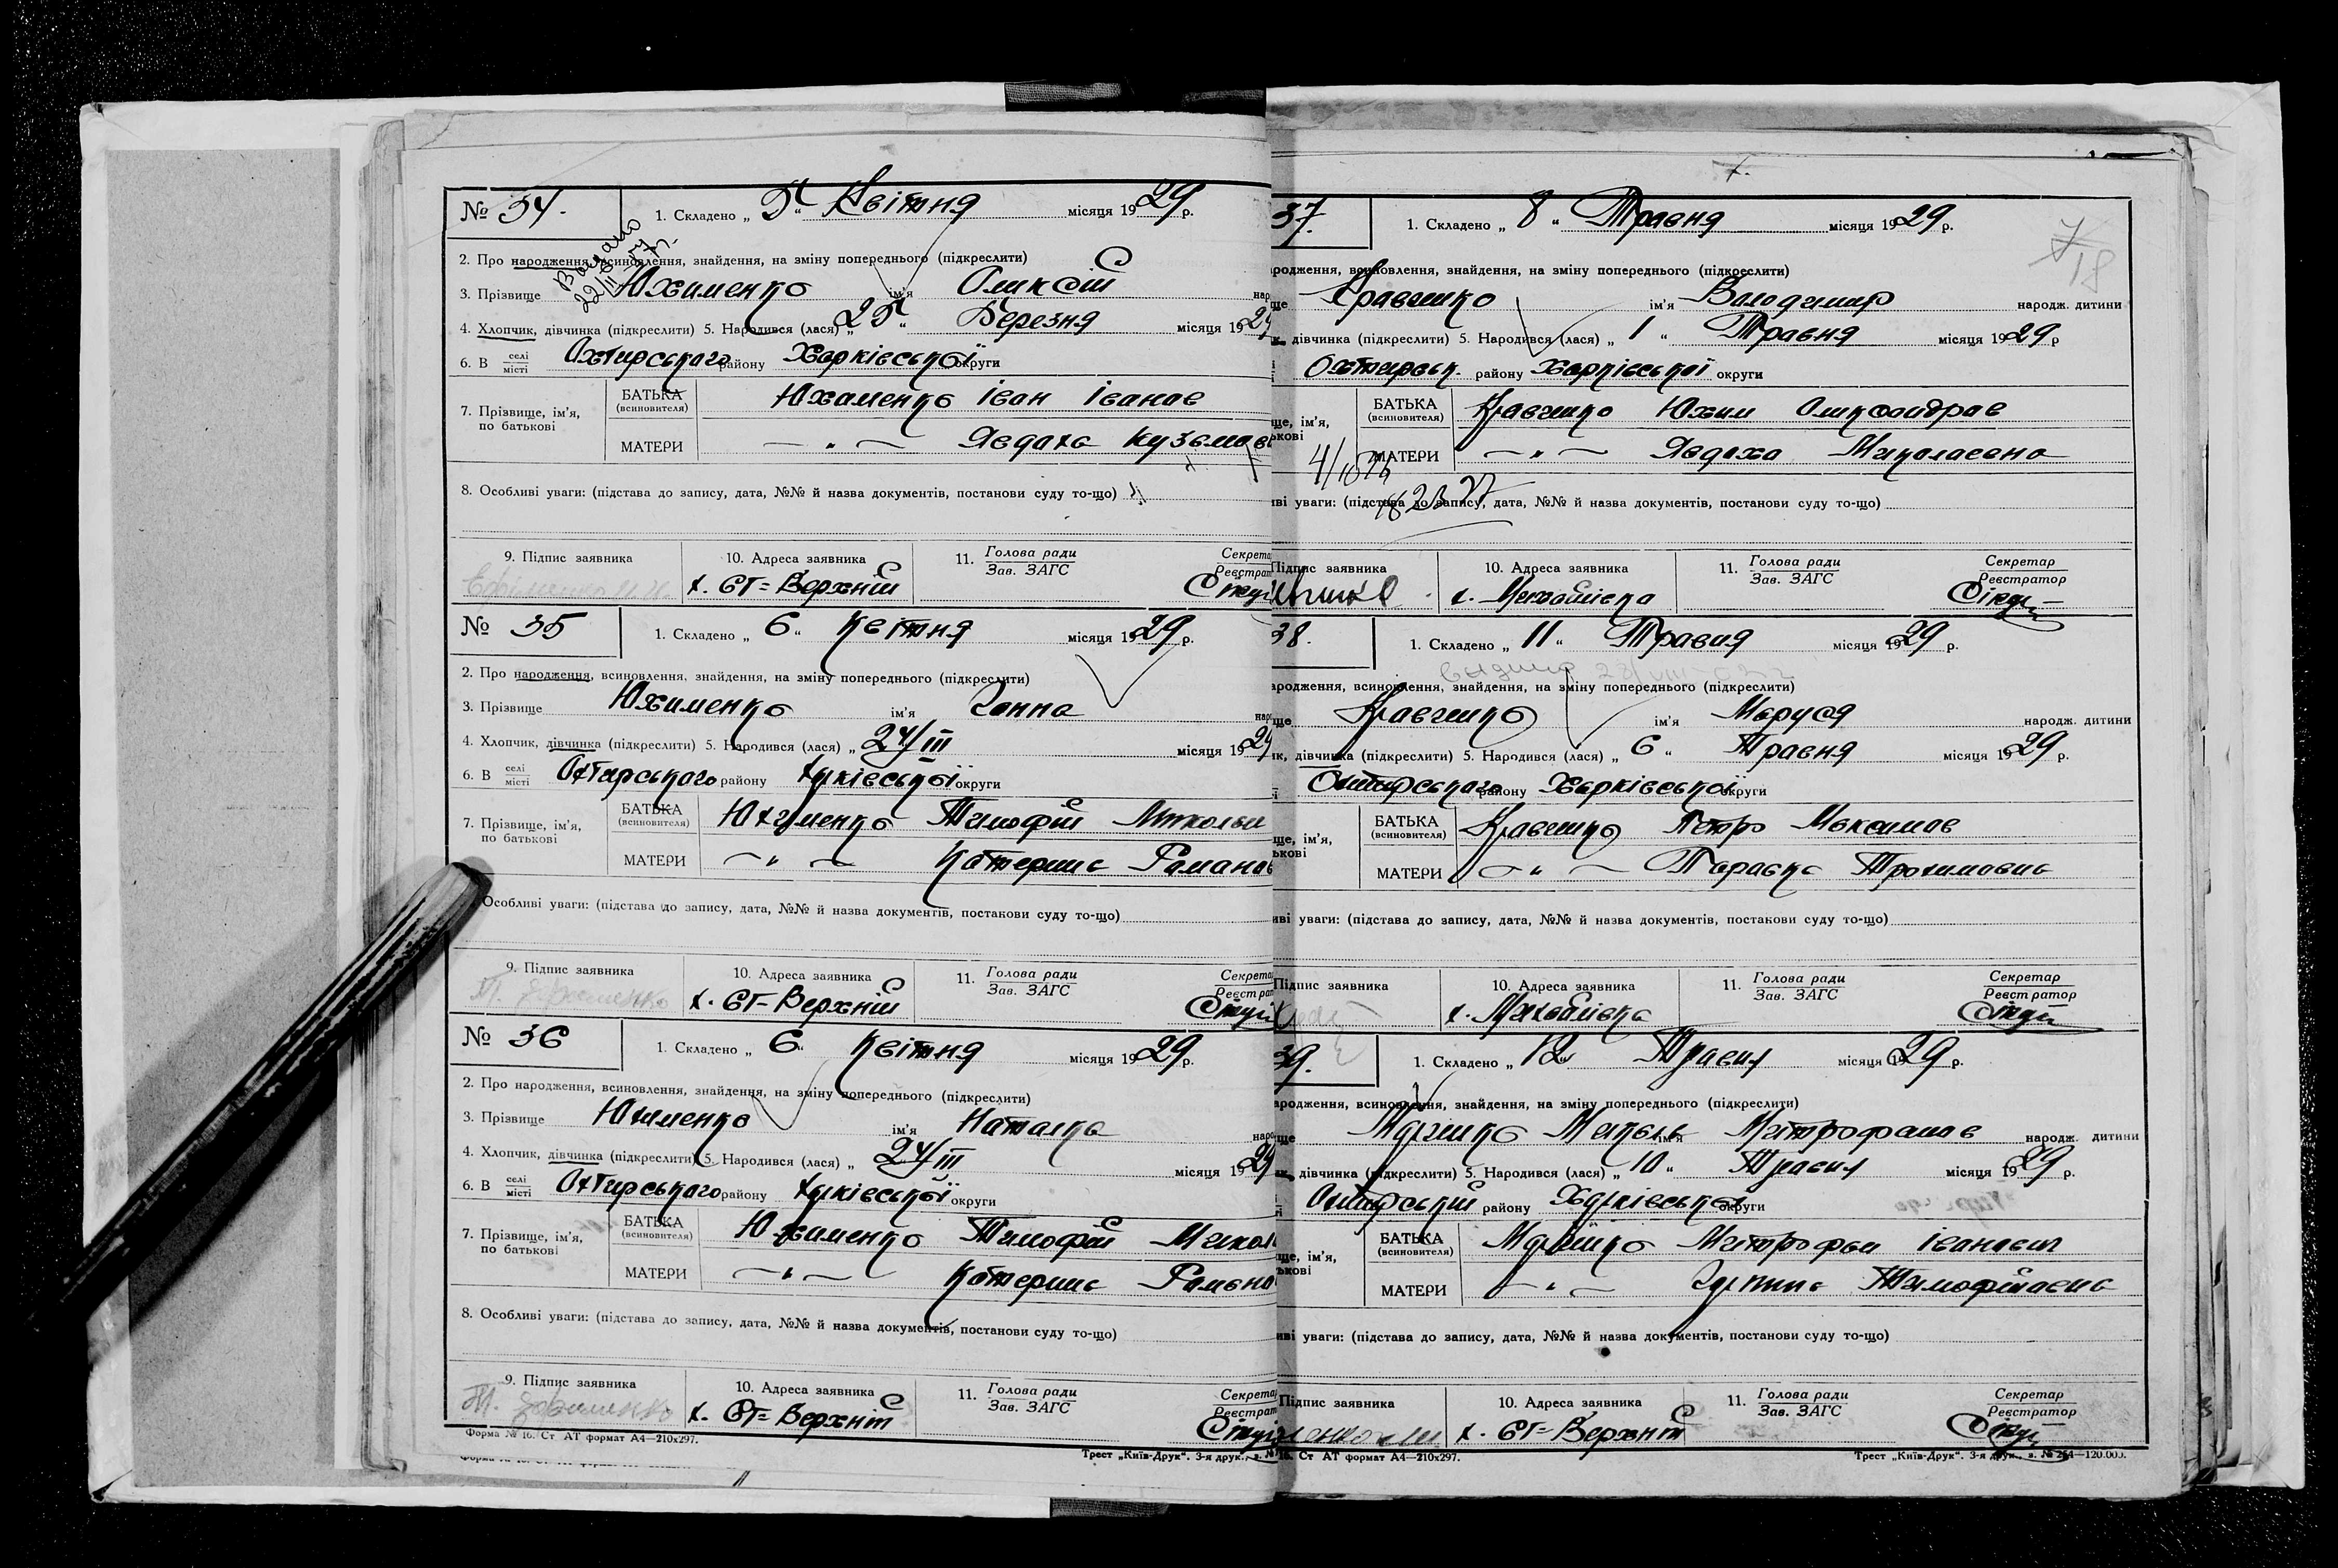 № 34. 1. Складено „ 5 “ Квітня місяця 1929 р.
Видано
22/II-
2. Про народження, всиновлення, знайдення, на зміну попереднього (підкреслити)
3. Прізвище Юхименко ім'я Олексій нар
4. Хлопчик, дівчинка (підкреслити) 5. Народився (лася) „ 25 “ Березня місяця 192
6. В селі місті Охтирського району Харківської округи
7. Прізвище, ім'я, по батькові
БАТЬКА (всиновителя) Юхименко Іван Іванов
МАТЕРИ — „ — Явдоха Кузьмов
8. Особливі уваги: (підстава до запису, дата, №№ й назва документів, постанови суду то-що)
9. Підпис заявника 10. Адреса заявника 11. Голова ради Зав. ЗАГС Секрета Реєстрат
х. Єт=Верхній
№ 35 1. Складено „ 6 “ Квітня місяця 1929 р.
2. Про народження, всиновлення, знайдення, на зміну попереднього (підкреслити)
3. Прізвище Юхименко ім'я Ганна наро
4. Хлопчик, дівчинка (підкреслити) 5. Народився (лася) „ 24/III місяця 192
6. В селі місті Охтирського району Харківської округи
7. Прізвище, ім'я, по батькові
БАТЬКА (всиновителя) Юхименко Тимофій Микольи
МАТЕРИ — „ — Катерина Романов
Особливі уваги: (підстава до запису, дата, №№ й назва документів, постанови суду то-що)
9. Підпис заявника 10. Адреса заявника 11. Голова ради Зав. ЗАГС Секрета Реєстрат
х. Єт=Верхній
№ 36 1. Складено „ 6 “ Квітня місяця 1929 р.
2. Про народження, всиновлення, знайдення, на зміну попереднього (підкреслити)
3. Прізвище Юхименко ім'я Наталка наро
4. Хлопчик, дівчинка (підкреслити) 5. Народився (лася) „ 24/III місяця 192
6. В селі місті Охтирського району Харківської округи
7. Прізвище, ім'я, по батькові
БАТЬКА (всиновителя) Юхименко Тимофій Микол
МАТЕРИ — „ — Катерина Романо
8. Особливі уваги: (підстава до запису, дата, №№ й назва документів, постанови суду то-що)
9. Підпис заявника 10. Адреса заявника 11. Голова ради Зав. ЗАГС Секрета Реєстрат
х. Єт=Верхній
Форма № 16. Ст АТ формат А4—210х297.
Трест „Київ-Друк“. 3-я друк. з. №
37. 1. Складено „ 8 “ Травня місяця 1929 р.
18
ародження, всиновлення, знайдення, на зміну попереднього (підкреслити)
ще Кравченко ім'я Володимир народж. дитини
к, дівчинка (підкреслити) 5. Народився (лася) „ 1 “ Травня місяця 1929 р
Охтирськ. району Харківської округи
ще, ім'я, ькові
БАТЬКА (всиновителя) Кравченко Юхим Олександров
МАТЕРИ — „ — Явдоха Миколаевна
иві уваги: (підстава до запису, дата, №№ й назва документів, постанови суду то-що)
Підпис заявника 10. Адреса заявника 11. Голова ради Зав. ЗАГС Секретар Реєстратор
х. Михайлівка
38. 1. Складено „ 11 “ Травня місяця 1929 р.
ародження, всиновлення, знайдення, на зміну попереднього (підкреслити)
ще Кравченко ім'я Маруся народж. дитини
ик, дівчинка (підкреслити) 5. Народився (лася) „ 6 “ Травня місяця 1929 р.
Охтирського району Харківської округи
ще, ім'я, ькові
БАТЬКА (всиновителя) Кравченко Петро Максимов
МАТЕРИ — „ — Параска Трохимовна
иві уваги: (підстава до запису, дата, №№ й назва документів, постанови суду то-що)
Підпис заявника 10. Адреса заявника 11. Голова ради Зав. ЗАГС Секретар Реєстратор
х. Михайлівка
39. 1. Складено „ 12 “ Травня місяця 1929 р.
ародження, всиновлення, знайдення, на зміну попереднього (підкреслити)
ще Микола ім'я Митрофанов народж. дитини
к, дівчинка (підкреслити) 5. Народився (лася) „ 10 “ Травня місяця 1929 р.
Охтирський району Харківської округи
ще, ім'я, ькові
БАТЬКА (всиновителя) Митрофан Іванович
МАТЕРИ — „ — Тимофіївна
иві уваги: (підстава до запису, дата, №№ й назва документів, постанови суду то-що)
Підпис заявника 10. Адреса заявника 11. Голова ради Зав. ЗАГС Секретар Реєстратор
х. Єт=Верхній
16. Ст АТ формат А4—210х297.
Трест „Київ-Друк“. 3-я друк. з. № 264—120.000.